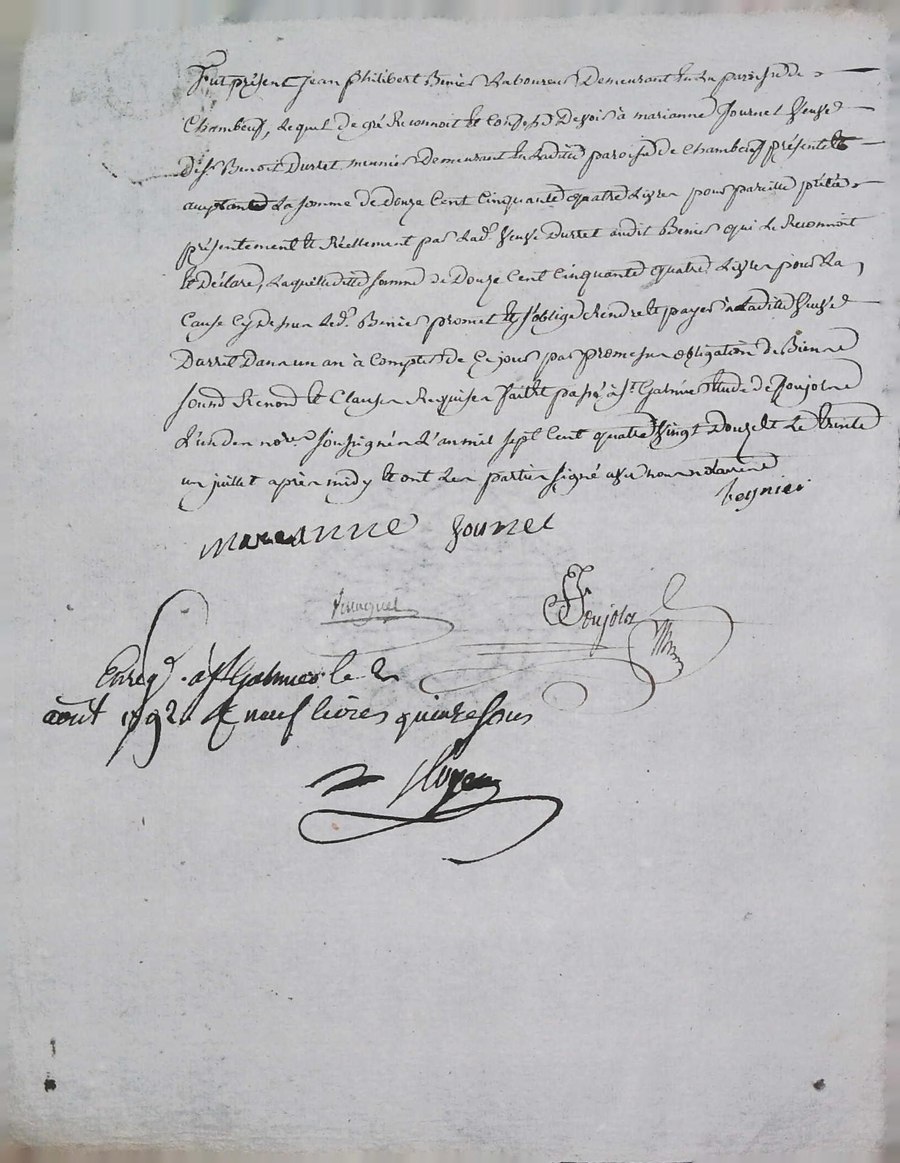 Fut présent Jean Philibert Benier Laboureur Demeurant En La paroisse de
Chambeuf, Lequel de gré Reconnoit Et Confesse Devoir à marianne Journet Veuve
De sr Benoit Durret meunier demeurant En Ladite paroisse de Chambeuf présente Et
acceptante La somme de douze Cent Cinquante quatre Livres pour pareille prétée
présentement Et Réellement par Lade Veuve Durret audit Benier qui Le Reconnoit
Et Déclare, Laquelle ditte somme de Douze Cent Cinquante quatre Livres pour La
Cause Cy dessus Led. Benier promet Et s'oblige rendre Et payer à Ladite Veuve
Durret Dans un an à Compter de Ce jour par promesse obligation de Biens
soumd Renond Et Clauses Requises fait Et passé à St Galmier Etude de Poujolas
L'un des nores soussignés L'an mil sept Cent quatre Vingt Douze Et Le trente
un juillet après midy Et ont Les parties signé avec nous notaires
mareanne Journet
Poujolas
Enreg à St Galmier le 2
août 1792 R neuf livres quinze sous